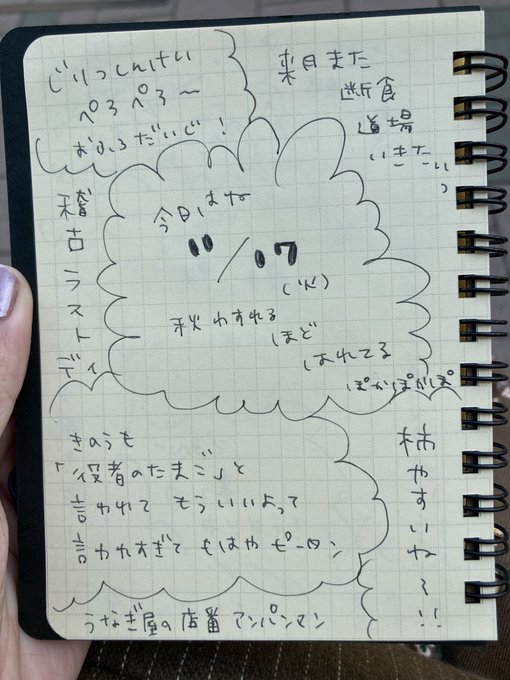 じりつしんけい
ぺろぺろ〜
おふろだいじ!
来月また
断食
道場
いきたいっ
稽古ラストディ
今日はね
11/07
(火)
秋わすれる
ほど
はれてる
ぽかぽかぽ
きのうも
「役者のたまご」と
言われて もういいよって
言われすぎて もはやピータン
柿やすいね〜!!
うなぎ屋の店番 アンパンマン